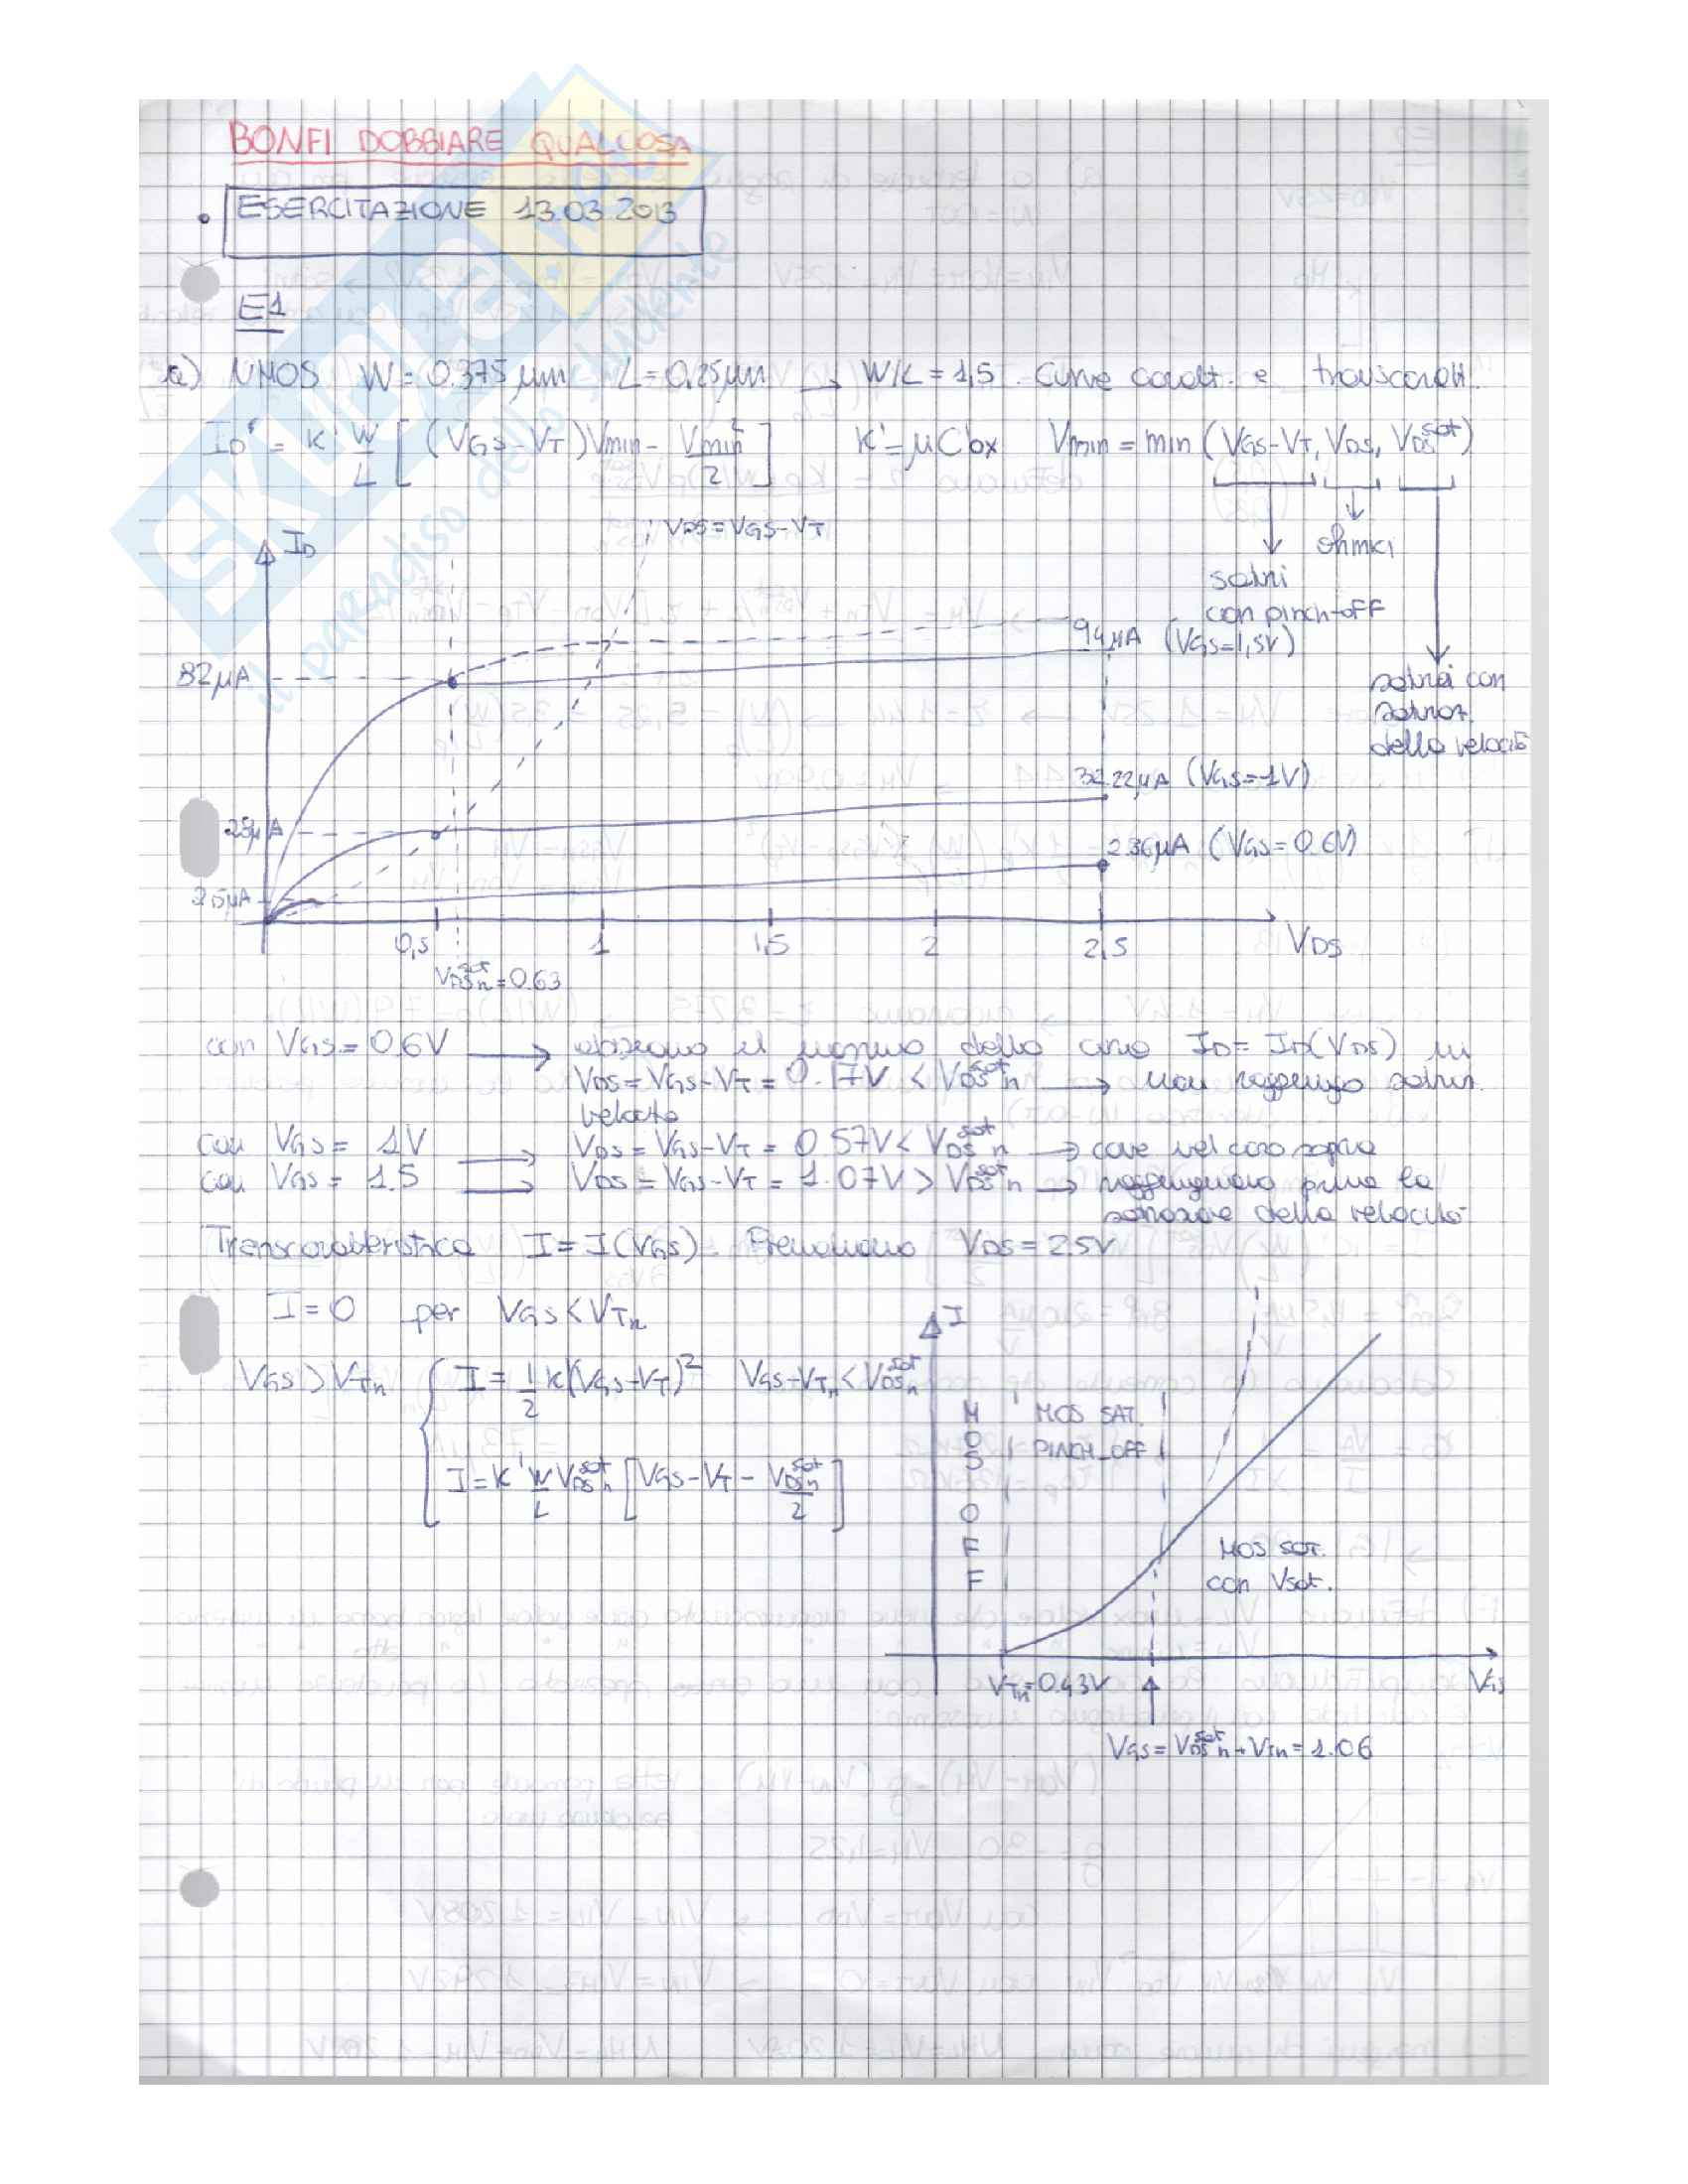 BONFI DOBBIARE QUALCOSA
• ESERCITAZIONE 13.03.2013
E1
a) NMOS W=0.375μm L=0,25μm → W/L=1,5. Curve caratt. e transcaratt.
ID = K' W/L [(VGS-VT)Vmin - Vmin²/2] K'=μC'ox Vmin = min (VGS-VT, VDS, VDS^sat)
VDS=VGS-VT
ohmici
satni
con pinch-off
satni con
saturaz.
della velocità
ID
94μA (VGS=1,5V)
82μA
32.22μA (VGS=1V)
2.36μA (VGS=0.6V)
0,5 1 1,5 2 2,5 VDS
VDSn^sat=0.63
con VGS=0.6V → il della curva ID=ID(VDS) in
VDS=VGS-VT=0.17V < VDSn^sat → non raggiungo saturaz.
velocità
con VGS=1V → VDS=VGS-VT=0.57V < VDSn^sat → come nel caso sopra
con VGS=1.5 → VDS=VGS-VT=1.07V > VDSn^sat → raggiungiamo prima la
saturazione della velocità
Transcaratteristica I=I(VGS). Prendiamo VDS=2.5V
I=0 per VGS<VTn
VGS>VTn { I=1/2 K(VGS-VT)² VGS-VTn<VDSn^sat
I=K' W/L VDSn^sat [VGS-VT-VDSn^sat/2]
I
MOS OFF
MOS SAT.
PINCH_OFF
MOS SAT.
con Vsat.
VTn=0.43V
VGS
VGS=VDSn^sat+VTn=1.06
SKUOLA.net
il paradiso dello studente